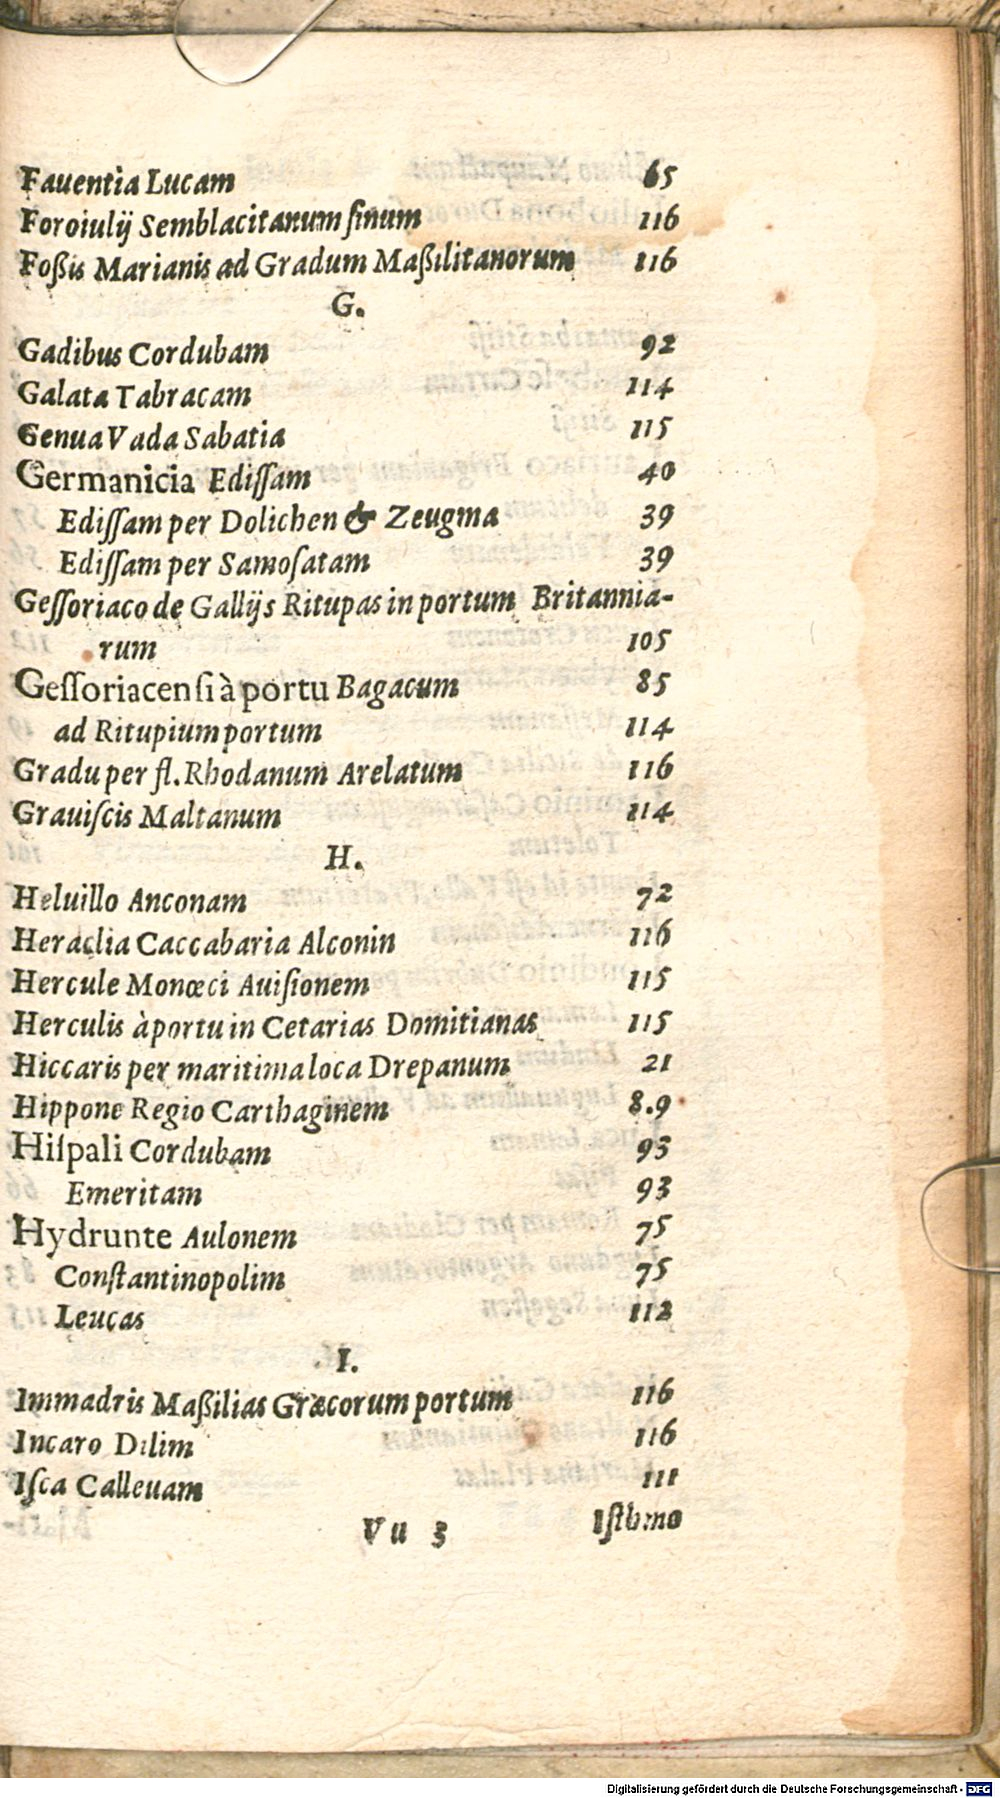 Fauentia Lucam 65
Foroiulij Semblacitanum ſinum 116
Foßis Marianis ad Gradum Maßilitanorum 116
G.
Gadibus Cordubam 92
Galata Tabracam 114
Genua Vada Sabatia 115
Germanicia Ediſſam 40
Ediſſam per Dolichen & Zeugma 39
Ediſſam per Samoſatam 39
Geſſoriaco de Gallijs Ritupas in portum Britannia-
rum 105
Geſſoriacenſi à portu Bagacum 85
ad Ritupium portum 114
Gradu per fl. Rhodanum Arelatum 116
Grauiſcis Maltanum 114
H.
Heluillo Anconam 72
Heraclia Caccabaria Alconin 116
Hercule Monœci Auiſionem 115
Herculis à portu in Cetarias Domitianas 115
Hiccaris per maritima loca Drepanum 21
Hippone Regio Carthaginem 8.9
Hiſpali Cordubam 93
Emeritam 93
Hydrunte Aulonem 75
Conſtantinopolim 75
Leucas 112
I.
Immadris Maßilias Græcorum portum 116
Incaro Dilim 116
Iſca Calleuam 111
Vu 3 Iſthmo
Digitalisierung gefördert durch die Deutsche Forschungsgemeinschaft - DFG